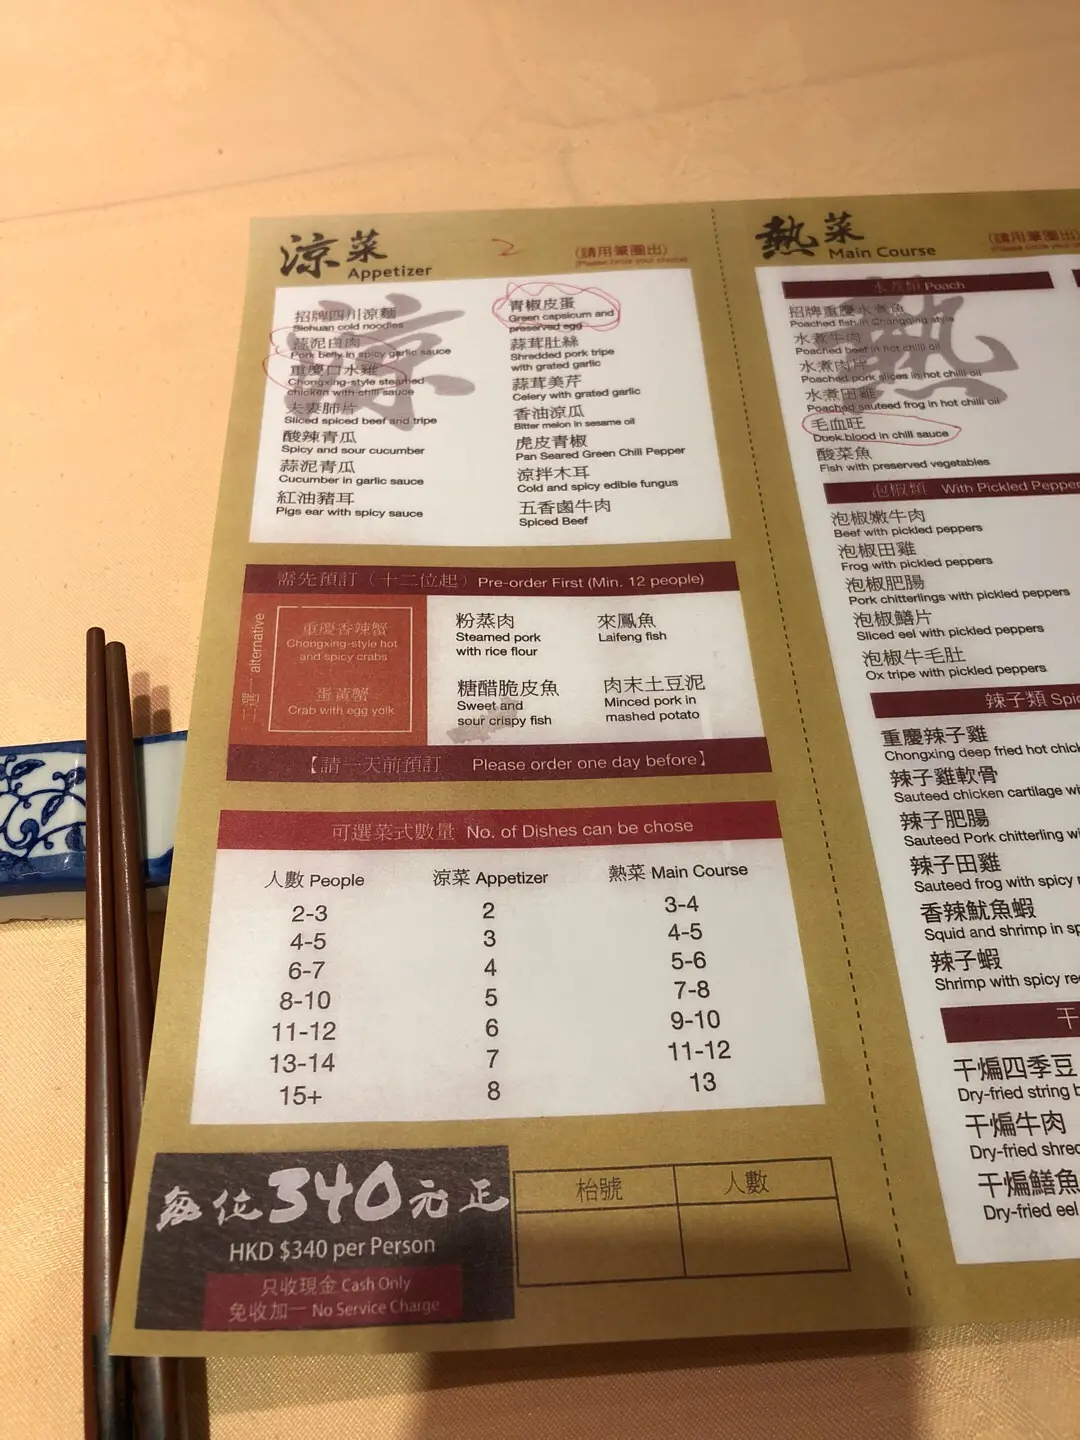 涼菜 Appetizer
2
(請用筆圈出)
(Please circle your choice)
招牌四川涼麵
Sichuan cold noodles
蒜泥白肉
Pork belly in spicy garlic sauce
重慶口水雞
Chongxing-style steamed
chicken with chili sauce
夫妻肺片
Sliced spiced beef and tripe
酸辣青瓜
Spicy and sour cucumber
蒜泥青瓜
Cucumber in garlic sauce
紅油豬耳
Pigs ear with spicy sauce
青椒皮蛋
Green capsicum and
preserved egg
蒜茸肚絲
Shredded pork tripe
with grated garlic
蒜茸美芹
Celery with grated garlic
香油涼瓜
Bitter melon in sesame oil
虎皮青椒
Pan Seared Green Chili Pepper
涼拌木耳
Cold and spicy edible fungus
五香鹵牛肉
Spiced Beef
涼
需先預訂（十二位起）Pre-order First (Min. 12 people)
二選一 alternative
重慶香辣蟹
Chongxing-style hot
and spicy crabs
蛋黃蟹
Crab with egg yolk
粉蒸肉
Steamed pork
with rice flour
來鳳魚
Laifeng fish
糖醋脆皮魚
Sweet and
sour crispy fish
肉末土豆泥
Minced pork in
mashed potato
【請一天前預訂 Please order one day before】
可選菜式數量 No. of Dishes can be chose
人數 People 涼菜 Appetizer 熱菜 Main Course
2-3 2 3-4
4-5 3 4-5
6-7 4 5-6
8-10 5 7-8
11-12 6 9-10
13-14 7 11-12
15+ 8 13
每位340元正
HKD $340 per Person
只收現金 Cash Only
免收加一 No Service Charge
枱號 人數
熱菜 Main Course
(請用筆圈出)
(Please circle your choice)
水煮類 Poach
招牌重慶水煮魚
Poached fish in Chongqing style
水煮牛肉
Poached beef in hot chili oil
水煮肉片
Poached pork slices in hot chili oil
水煮田雞
Poached sauteed frog in hot chili oil
毛血旺
Duck blood in chili sauce
酸菜魚
Fish with preserved vegetables
熱
泡椒類 With Pickled Pepper
泡椒嫩牛肉
Beef with pickled peppers
泡椒田雞
Frog with pickled peppers
泡椒肥腸
Pork chitterlings with pickled peppers
泡椒鱔片
Sliced eel with pickled peppers
泡椒牛毛肚
Ox tripe with pickled peppers
辣子類
重慶辣子雞
Chongxing deep fried hot
辣子雞軟骨
Sauteed chicken cartilage
辣子肥腸
Sauteed Pork chitterling
辣子田雞
Sauteed frog with spicy
香辣魷魚蝦
Squid and shrimp in
辣子蝦
Shrimp with spicy
干
干煸四季豆
Dry-fried string
干煸牛肉
Dry-fried
干煸鱔魚
Dry-fried eel